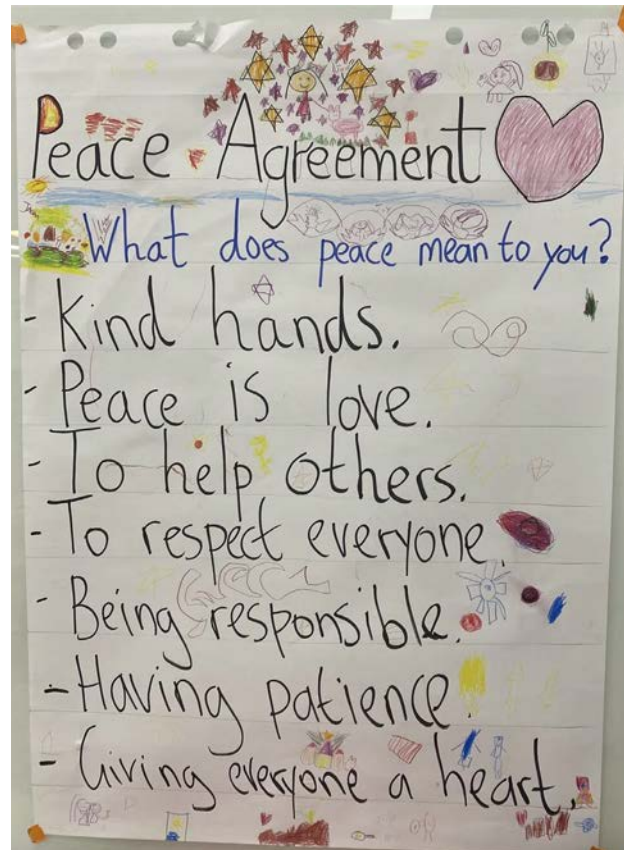 Peace Agreement
What does peace mean to you?
- Kind hands.
- Peace is love.
- To help others.
- To respect everyone.
- Being responsible.
- Having patience.
- Giving everyone a heart.